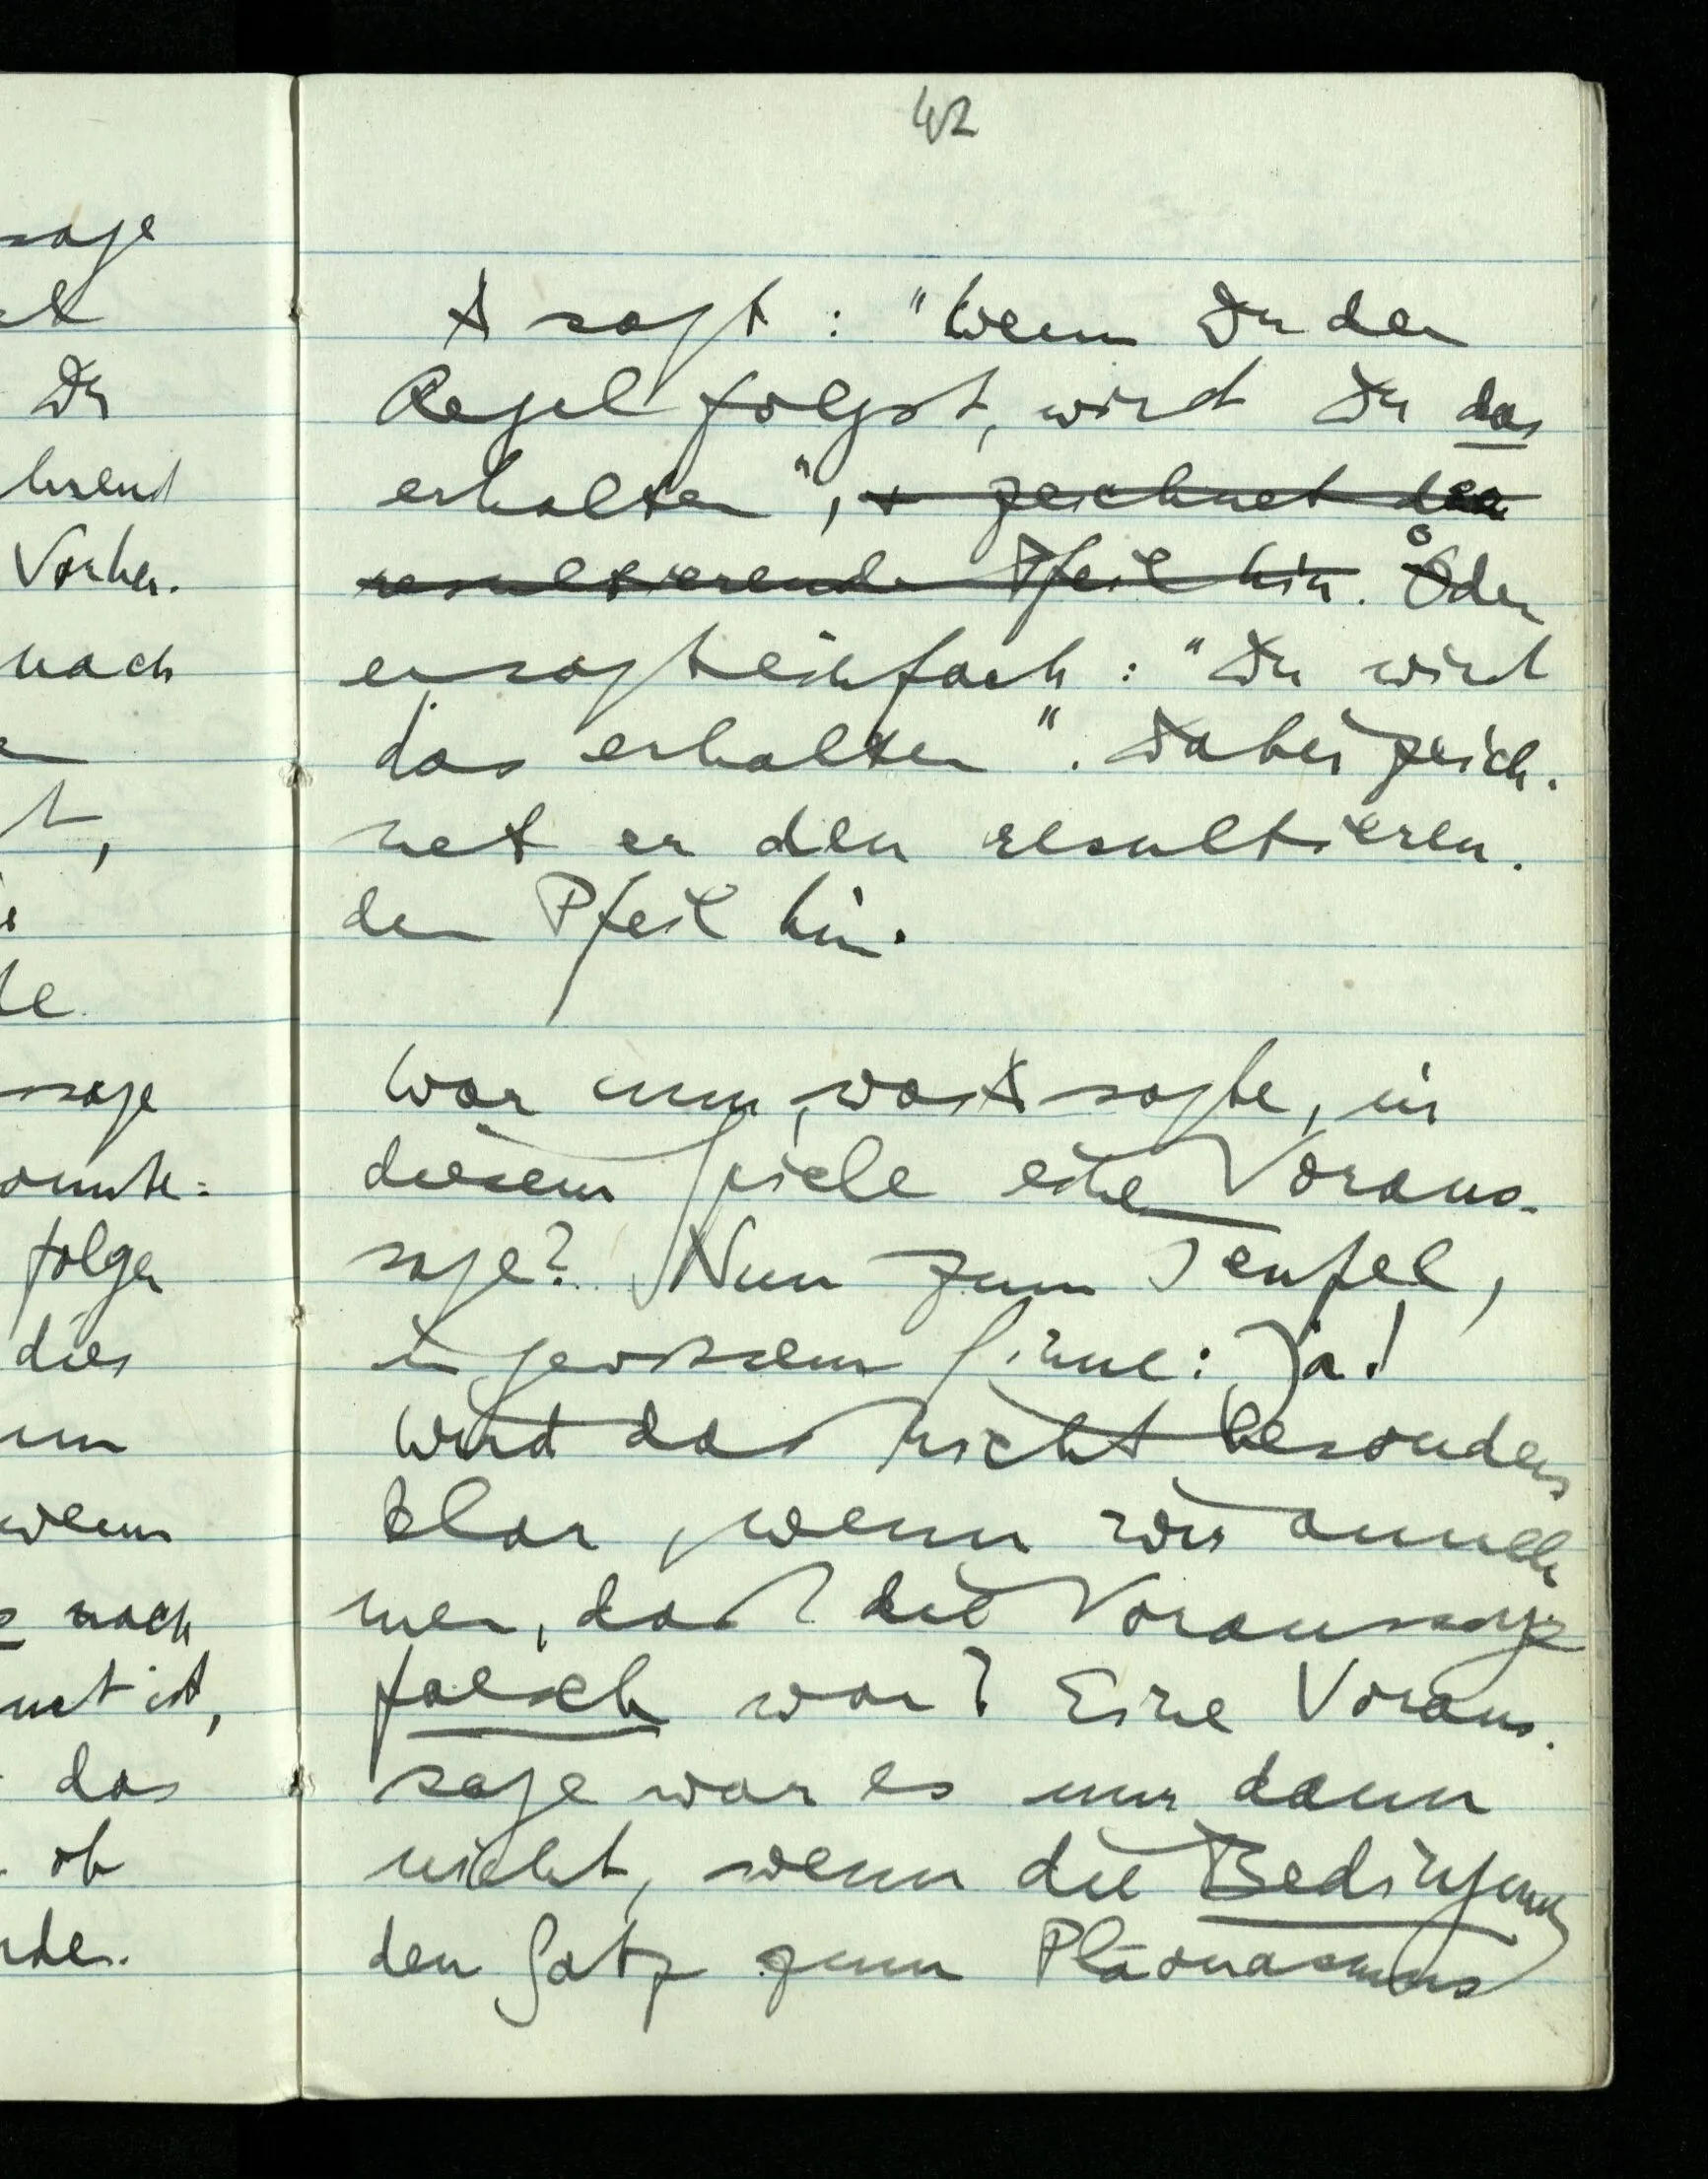 sage
Du
hrend
Vorher.
nach
t,
le
sage
onnte:
folgen
dies
wenn
nach
net ist,
das
ob
rde.
42
A sagt: "Wenn Du der
Regel folgst, wirst Du das
erhalten", + zeichnet den
resultierenden Pfeil hin. Oder
er sagt einfach: "Du wirst
das erhalten". Dabei zeich-
net er den resultieren-
den Pfeil hin.
War nun, was A sagte, in
diesem Spiele eine Voraus-
sage? Nun zum Teufel,
in gewissem Sinne: Ja!
Wird das nicht besonders
klar, wenn wir anneh
men, daß die Voraussage
falsch war? Eine Voraus-
sage war es nur dann
nicht, wenn die Bedingung
den Satz zum Pläonasmus